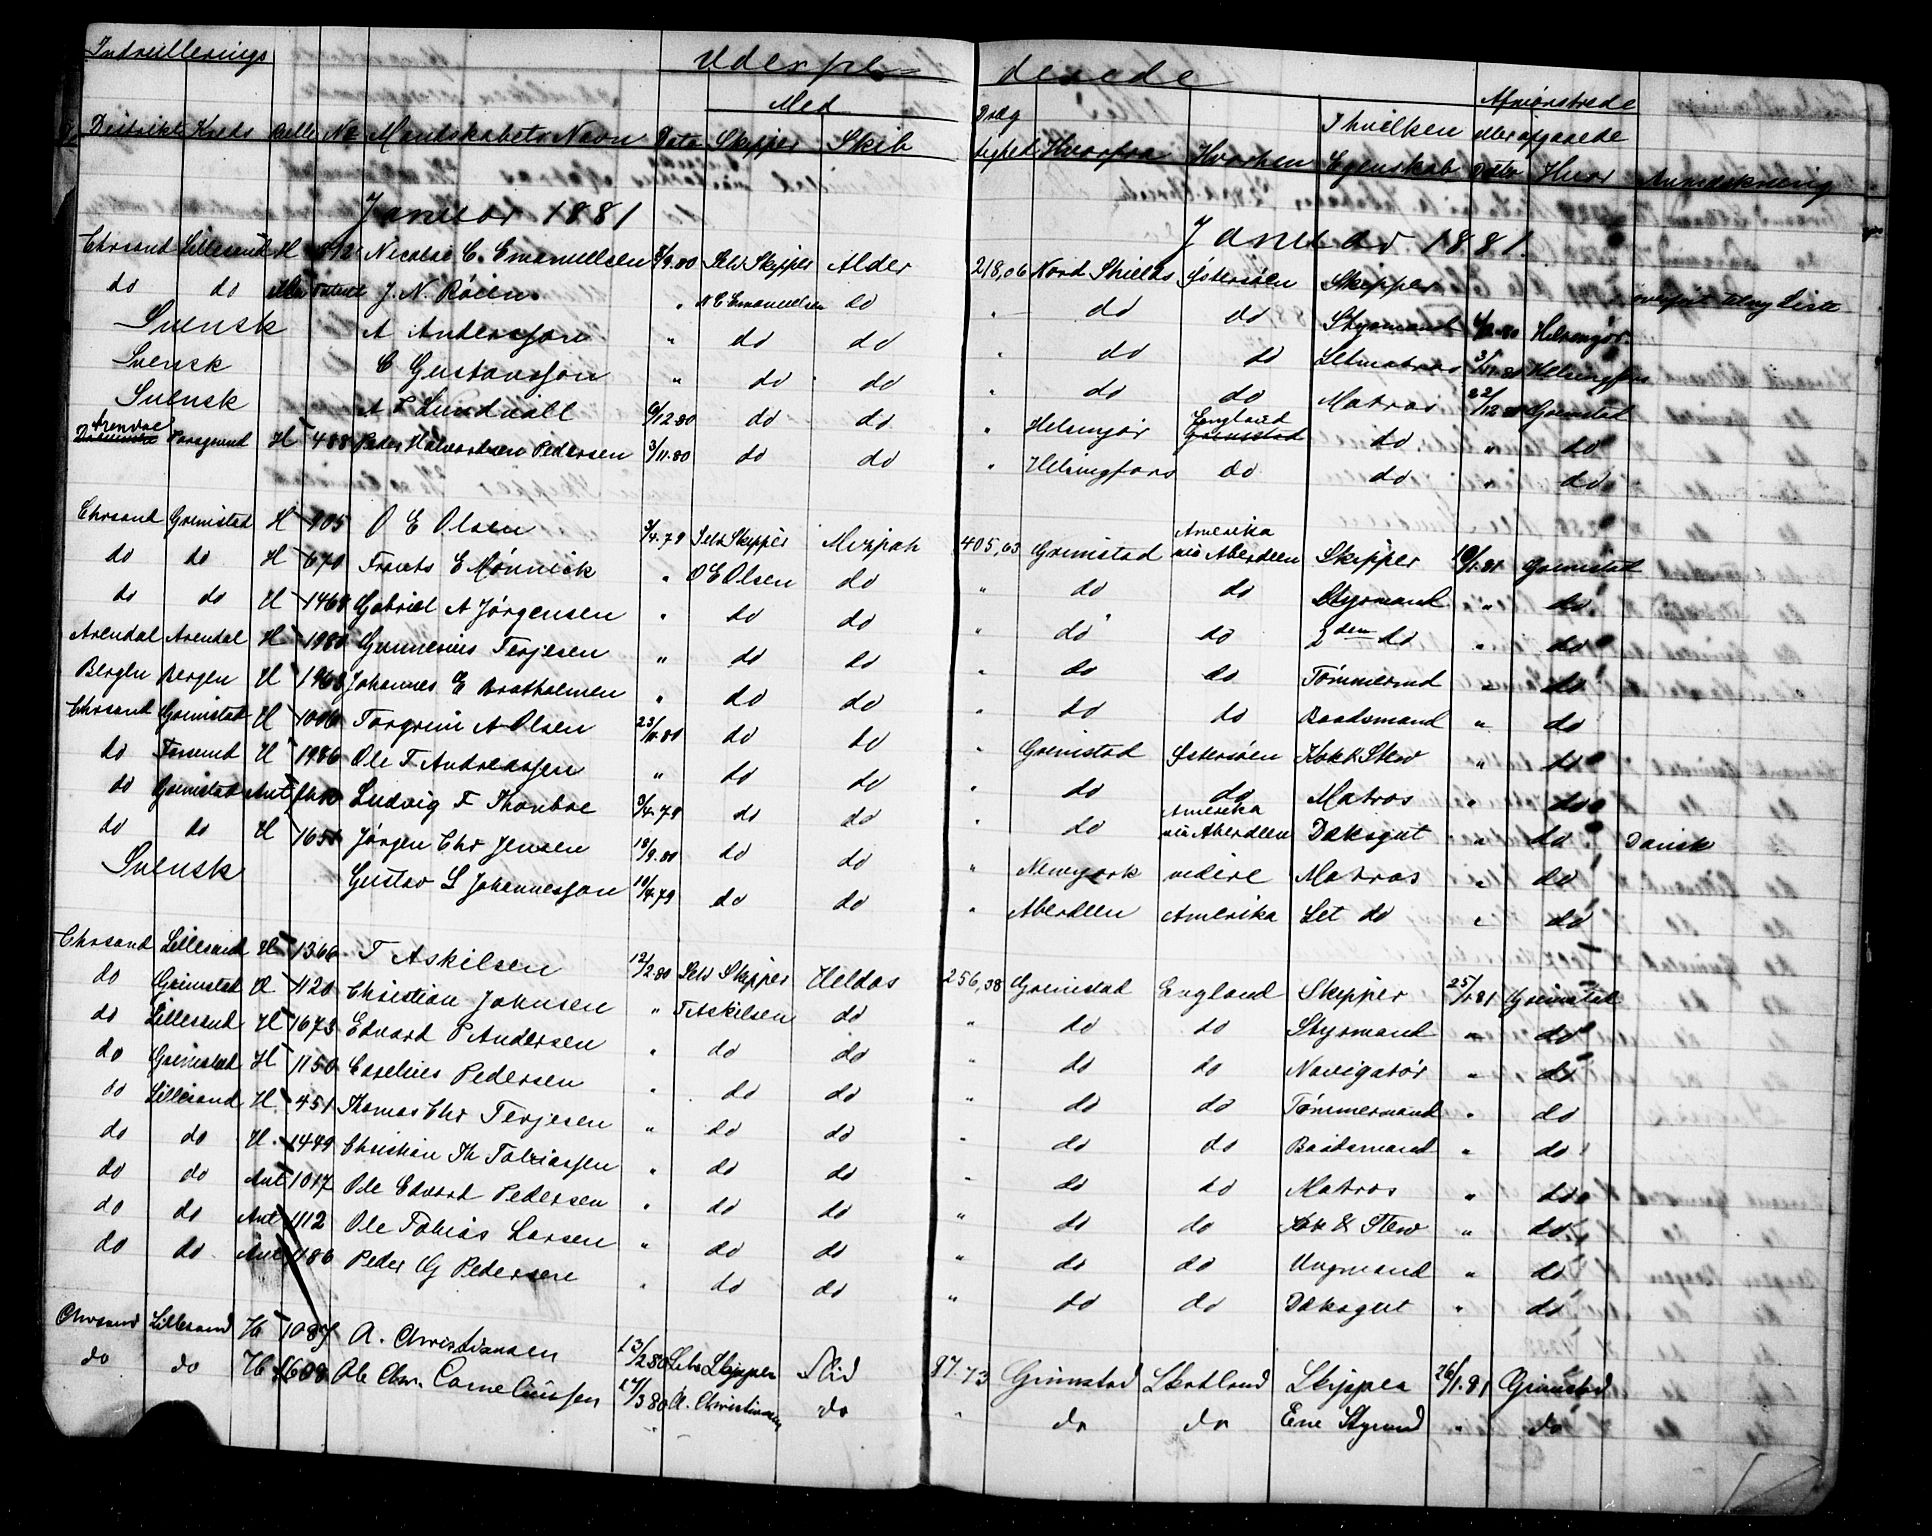 Indrullerings Udexpe derede
Med Afmønstrede
Distrikt Kreds Rulle No Mandskabets Navn Dato Skipper Skib Dræg tighed Hvorfra Hvorhen I hvilken Egenskab eller afgaaede Dato Hvor Anmærkning
Januar 1881 Januar 1881.
Chrsand Lillesand H Nicolai C. Emanuellsen Selv Skipper Alder 218,06 Nord Shields Østersøen Skipper
do do J. N. Röien " N E Emanuelsen do " do do Styrmand Helsingør
Svensk A Anderssson " do do " do do Letmatros Helsingfors
Svensk C Gustavsson " do do " do do Matros 22/12 80 Grimstad
Svensk A L Lundvall 6/12 80 do do " Helsingør England do " do
Arendal Porsgrund H 488 Peder Halvordsen Pedersen 3/11.80 do do " Helsingfors do do " do
Chrsand Grimstad H 405 O E Olsen 3/4.79 Selv Skipper Mizpah 405,63 Grimstad Amerika via Aberdeen Skipper 10/1.81 Grimstad
do do H 670 Frants E Mønnick " O E Olsen do " do do Styrmand " do
do do H 1468 Gabriel A Jørgensen " do do " do do 2den do " do
Arendal Arendal H 1980 Gunnerius Terjesen " do do " do do Tømmermd " do
Bergen Bergen H 1968 Johannes E Bratholmen " do do " do do Baadsmand " do
Chrsand Grimstad H 1006 Torgrim A Olsen 23/11.80 do do " Grimstad Østersøen Kok & Stew " do
do Farsund H 1986 Ole T Andreassen " do do " do do Matros " do
do Grimstad Ant Ludvig F Thonboe 3/4.79 do do " do Amerika via Aberdeen Dæksgut " do Dansk
do do H 1651 Jørgen Chr Jensen 18/9.80 do do " Newyork videre Matros " do
Svensk Gustav S Johannesson 10/4.79 do do " Aberdeen Amerika Let do " do
Chrsand Lillesand H 1366 T Askilsen 12/2.80 Selv Skipper Heldos 256,38 Grimstad England Skipper 25/1.81 Grimstad
do Grimstad H 1120 Christian Johnsen " T Askilsen do " do do Styrmand " do
do Lillesand H 1673 Edvard P Andersen " do do " do do Navigatør " do
do Grimstad H 1150 Eselius Pedersen " do do " do do Tømmermand " do
do Lillesand H 451 Thomas Chr Terjesen " do do " do do Baadsmand " do
do do H 1449 Christian Th Tobiassen " do do " do do Matros " do
do do Ant 1017 Ole Edvard Pedersen " do do " do do Kok & Stew " do
do do Ant 1112 Ole Tobias Larsen " do do " do do Ungmand " do
do do Ant 1186 Peder G Pedersen " do do " do do Dæksgut " do
Chrsand Lillesand H 1087 A. Christiansen 13/2 80 Selv Skipper Alid 87.73 Grimstad Skotland Skipper 26/1.81 Grimstad
do do H 1600 Ole Chr. Corneliussen 17/3 80 A. Christiansen do " do do Ene Styrmd " do